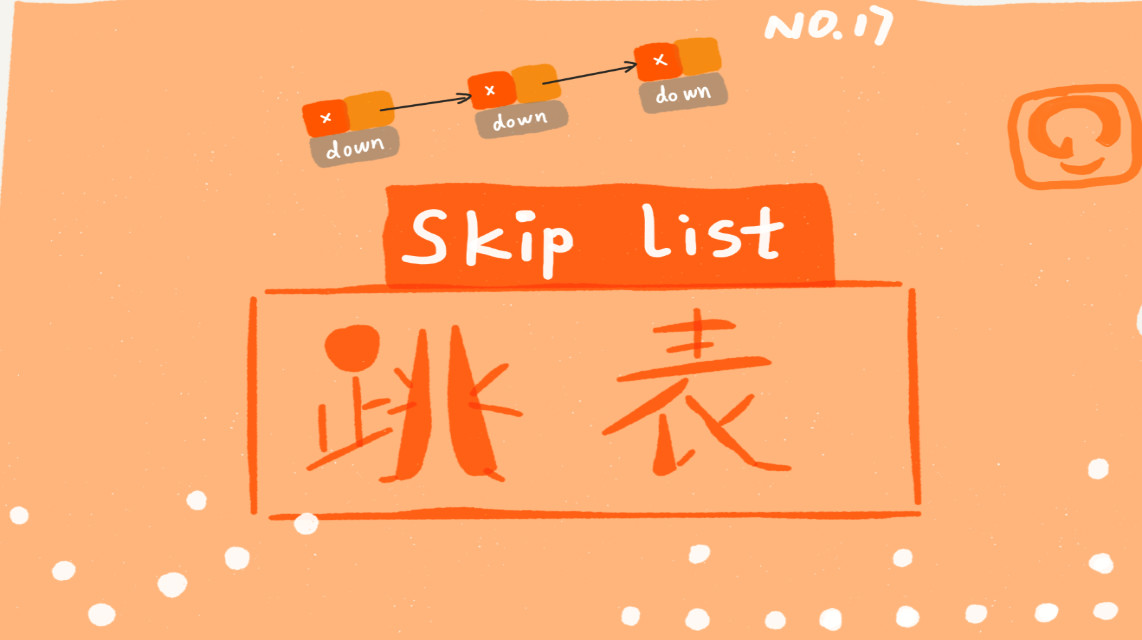 NO.17
x
down
x
down
x
down
Skip list
跳表